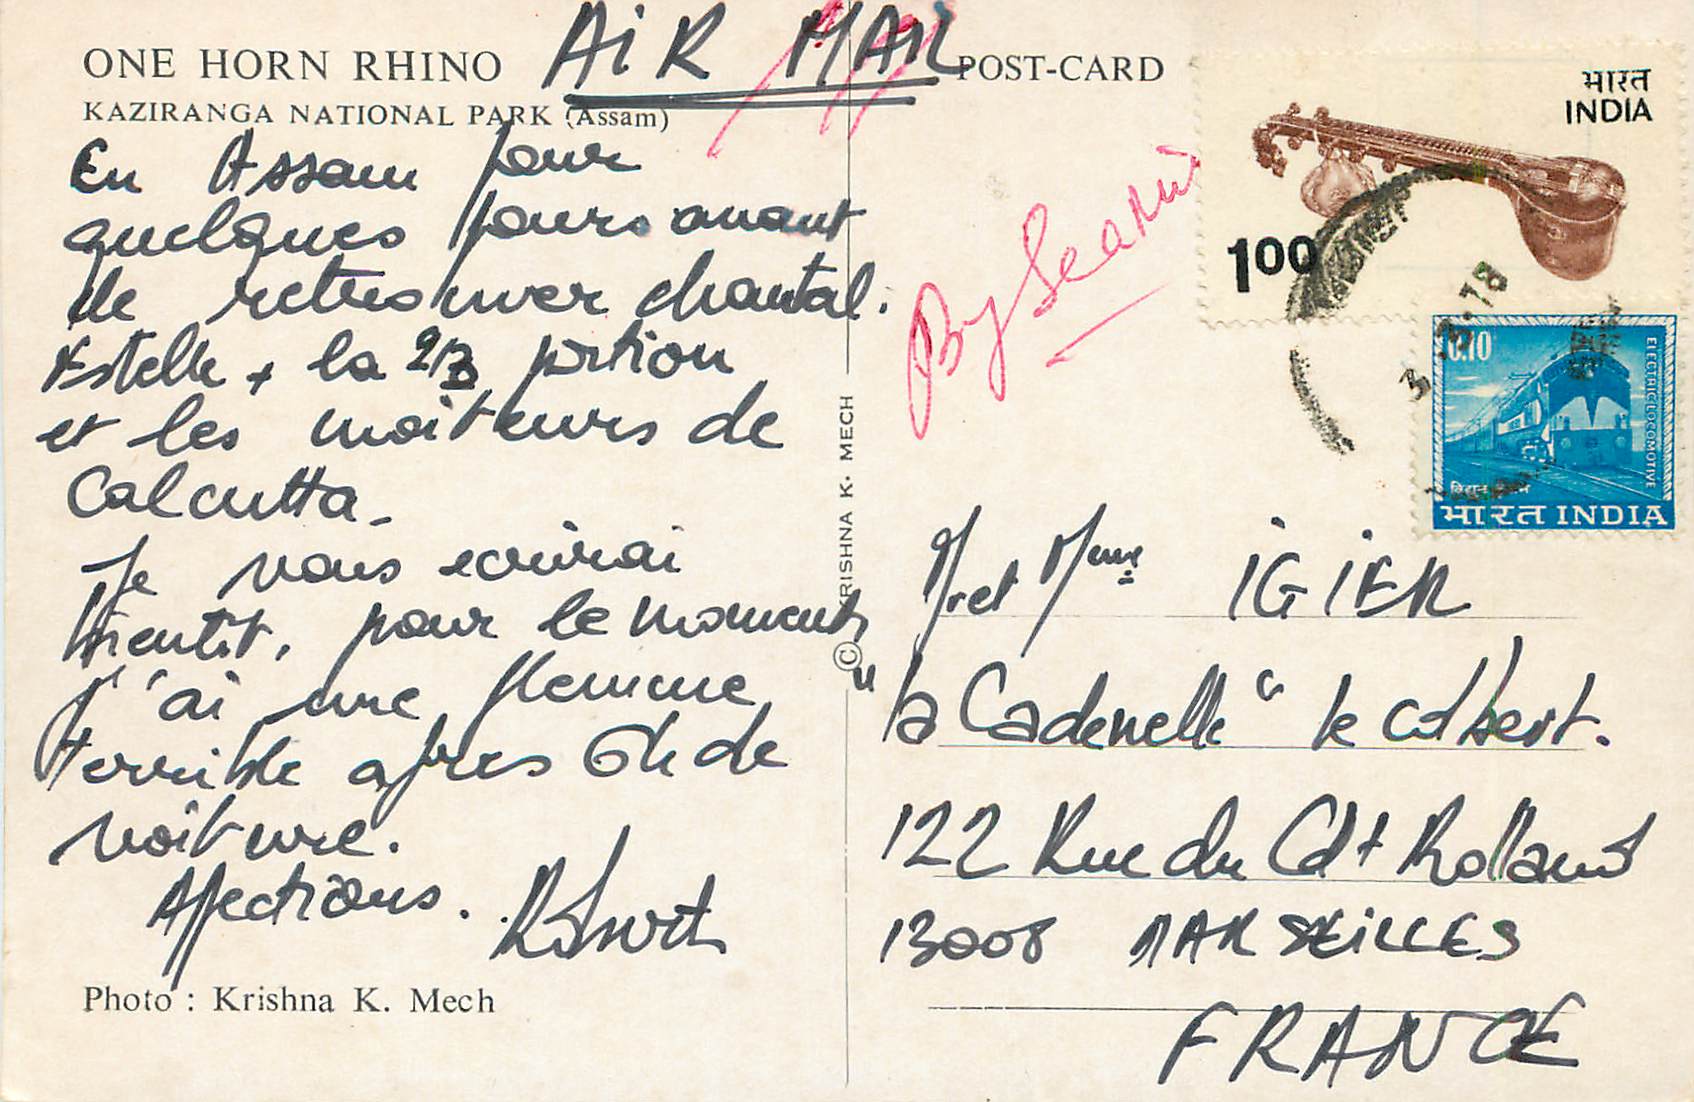 ONE HORN RHINO
KAZIRANGA NATIONAL PARK (Assam)
AiR MAIL
POST-CARD
En Assam pour
quelques jours avant
de retrouver chantal.
Estelle + la 2/3 portion
et les moiteurs de
Calcutta_
Je vous ecrirai
bientôt, pour le moment
j'ai une flemme
terrible apres 6h de
voiture.
Affections.
Photo : Krishna K. Mech
© KRISHNA K. MECH
By Seamail
भारत
INDIA
1.00
3 .78
0.10
ELECTRIC LOCOMOTIVE
भारत INDIA
Mr et Mme iGiER
"la Cadenelle" le colbert.
122 Rue du Cdt Rolland
13008 MARSEiLLES
FRANCE